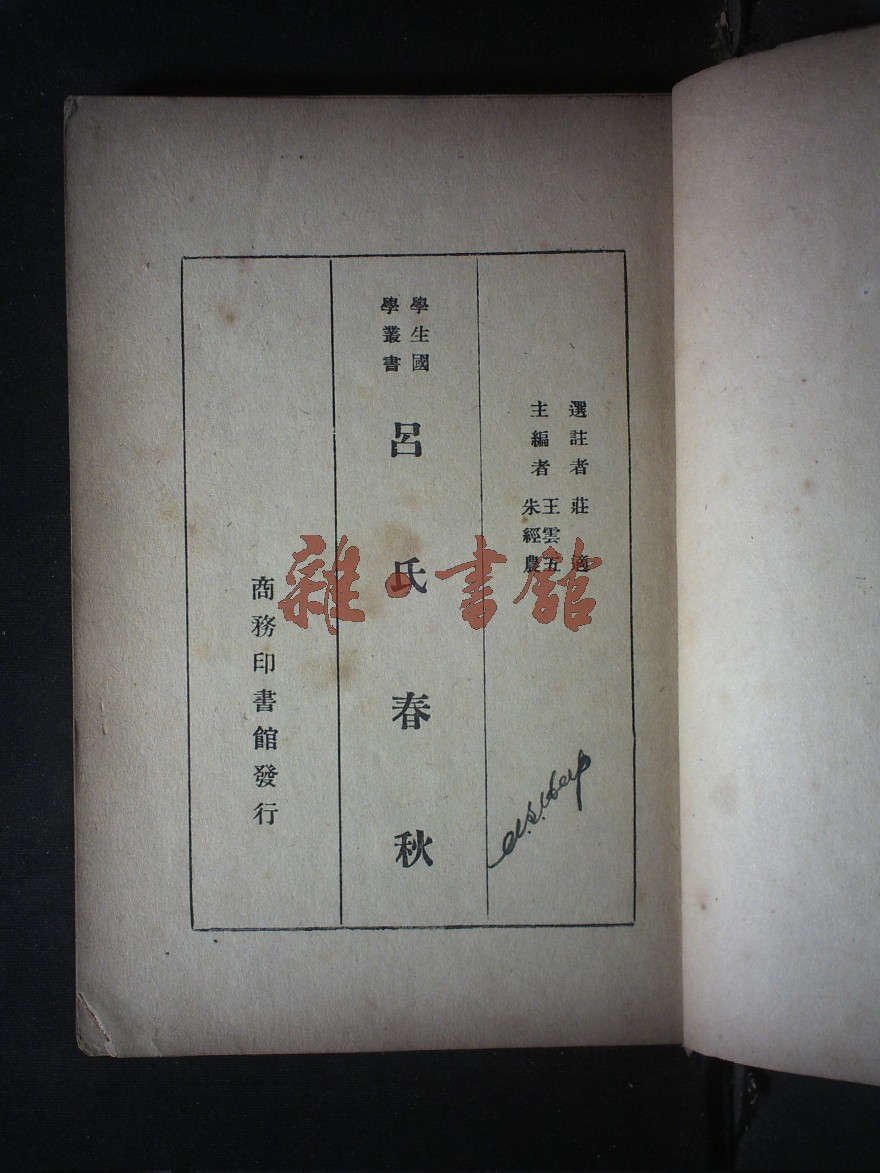 選註者 莊適
主編者 王雲五
朱經農
學生國
學叢書
呂氏春秋
商務印書館發行
雜·書館